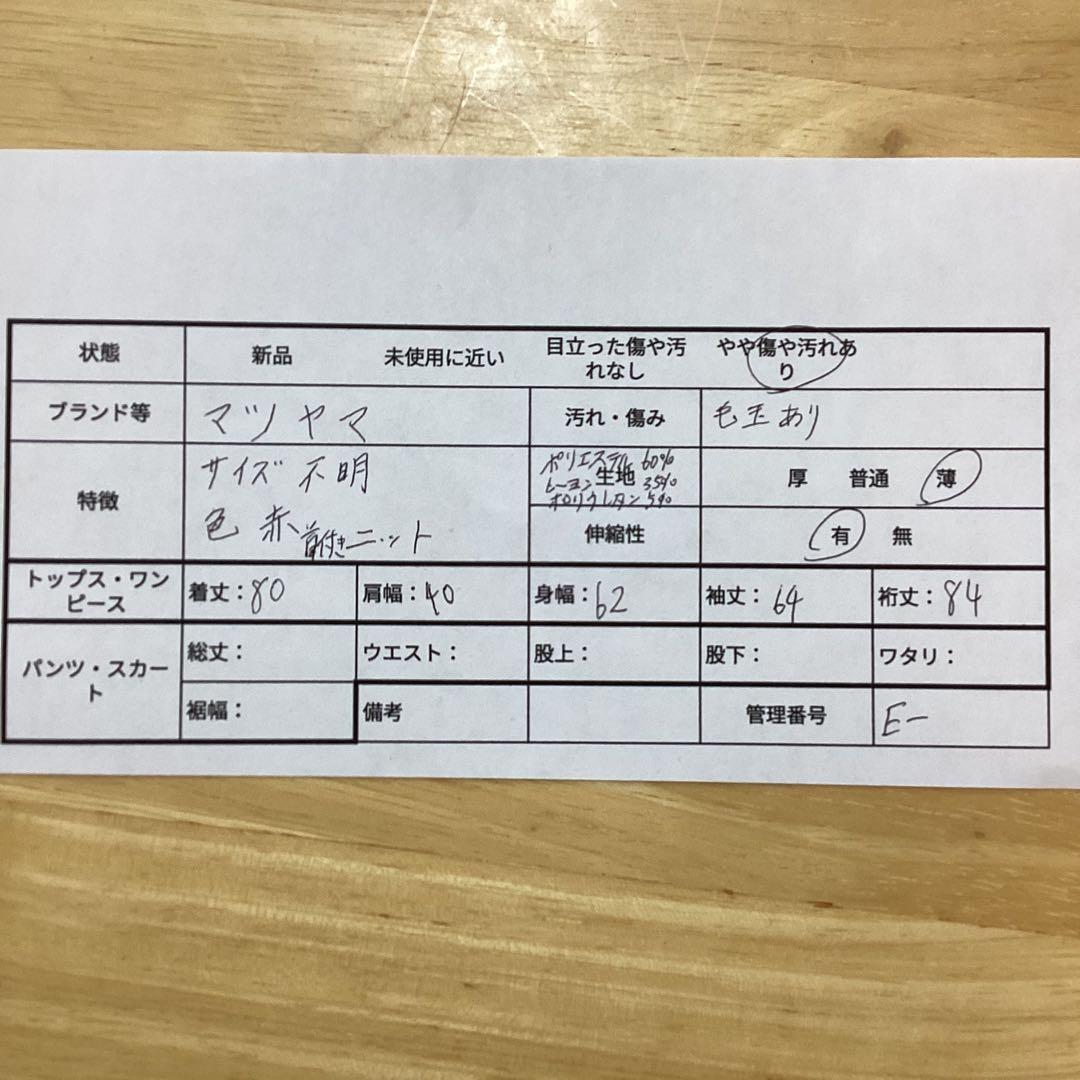 状態 新品 未使用に近い 目立った傷や汚 やや傷や汚れあ
れなし り
ブランド等 マツヤマ 汚れ・傷み 毛玉あり
特徴 サイズ 不明
色 赤 付きニット
ポリエステル 60%
レーヨン 35%
ポリウレタン 5%
生地 厚 普通 薄
伸縮性 有 無
トップス・ワン
ピース 着丈:80 肩幅:40 身幅:62 袖丈:64 裄丈:84
パンツ・スカー
ト 総丈: ウエスト: 股上: 股下: ワタリ:
裾幅: 備考 管理番号 E-